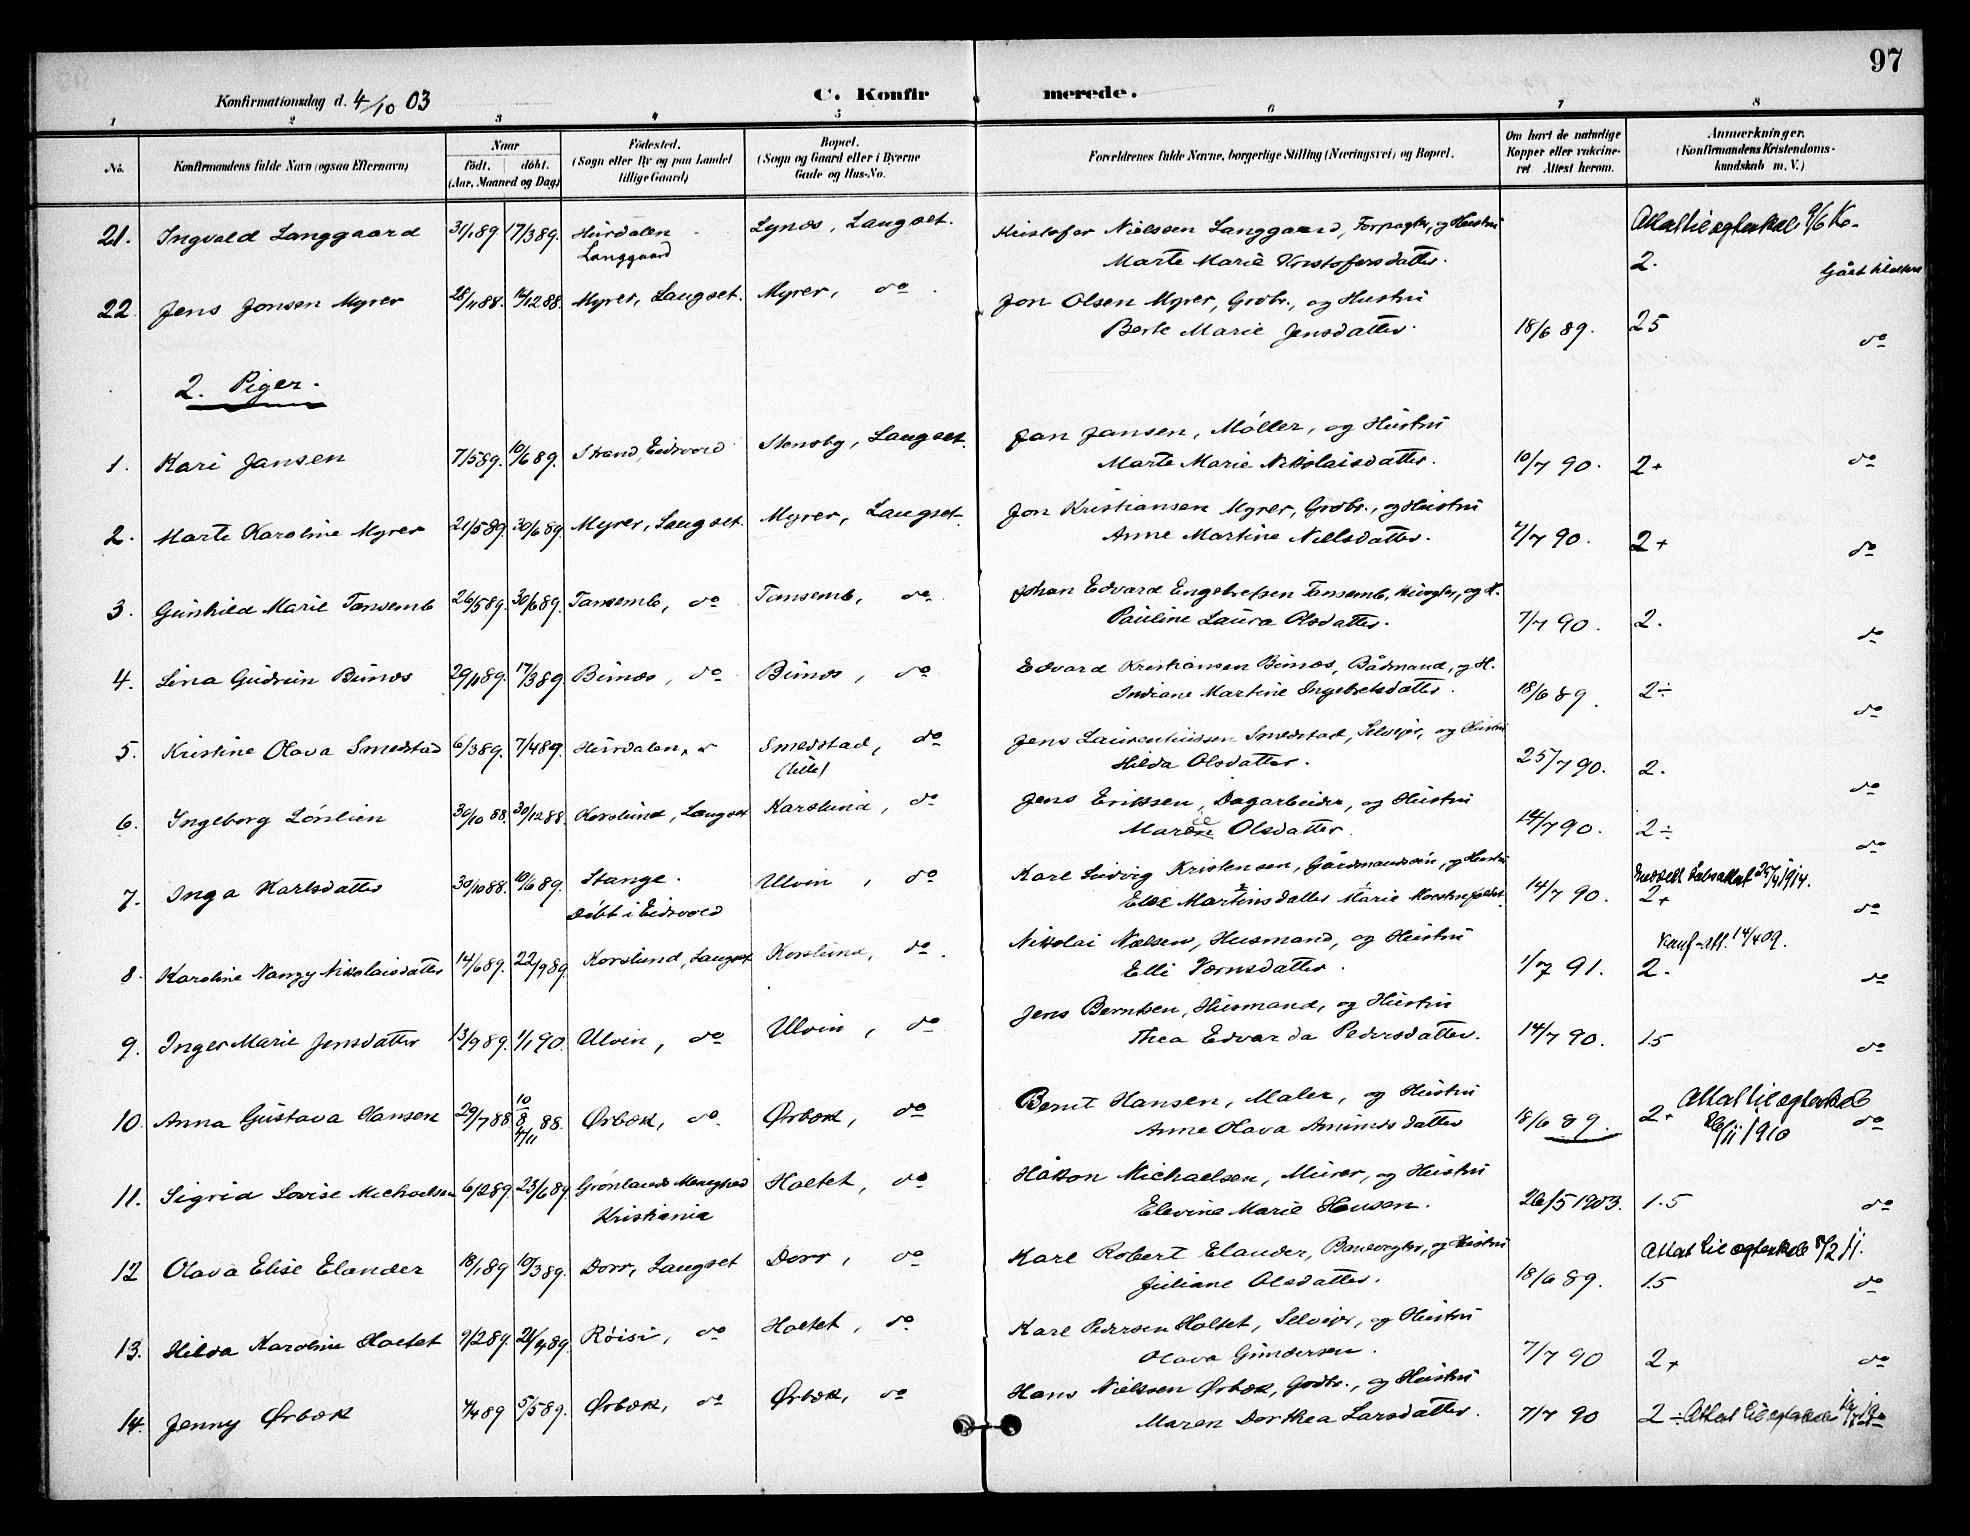 97
Konfirmationsdag d. 4/10 03
C. Konfirmerede.
1 2 3 4 5 6 7 8
No.
Konfirmandens fulde Navn (ogsaa Efternavn)
Naar
födt. döbt.
(Aar, Maaned og Dag)
Födested.
(Sogn eller By og paa Landet
tillige Gaard)
Bopæl.
(Sogn og Gaard eller i Byerne
Gade og Hus-No.
Forældrenes fulde Navne, borgerlige Stilling (Næringsvei) og Bopæl.
Om havt de naturlige
Kopper eller vakcine-
ret Attest herom.
Anmærkninger.
(Konfirmandens Kristendoms-
kundskab m. V.)
21. Ingvald Langgaard 31/1 89 17/3 89. Hurdalen Lynæs, Laugset. Kristofer Nielsen Langgaard, Forpagter, og Hustru
Langgaard Marte Marie Kristofersdatter. 2.
22. Jens Jonsen Myrer 28/11 88. Myrer, Laugset. Myrer, do Jon Olsen Myrer, Grdbr., og Hustru
Berte Marie Jensdatter. 18/6 89. 25 do
2. Piger.
1. Kari Jansen 7/5 89. 10/6 89. Strand, Eidsvold Stensby, Laugset. Jan Jansen, Møller, og Hustru
Marte Marie Nikolaisdatter. 10/7 90. 2+ do
2. Marte Karoline Myrer 21/5 89. 30/6 89. Myrer, Laugset. Myrer, Laugset. Jon Kristiansen Myrer, Grdbr., og Hustru
Anne Martine Nielsdatter. 7/7 90. 2+ do
3. Gunhild Marie Tansemb 26/5 89. 30/6 89. Tansemb, do Tansemb, do Johan Edvard Engebretsen Tansemb, og H.
Pauline Laura Olsdatter. 7/7 90. 2. do
4. Lina Gudrun Bunæs 17/3 89. Bunæs, do Bunæs, do Edvard Kristiansen Bunæs, Bådmand, og H.
Indiane Martine Ingebretsdatter. 18/6 89. 2÷ do
5. Kristine Olava Smedstad 6/3 89. 7/4 89. Hurdalen Smedstad, do Jens Laurentiussen Smedstad, Selveier, og Hustru
(lille) Hilda Olsdatter. 25/7 90. 2. do
6. Ingeborg Lønlien 30/10 88. 30/12 88. Korslund, Laugset Korslund, do Jens Eriksen, Dagarbeider, og Hustru
Maren Olsdatter. 14/7 90. 2÷ do
7. Inga Karlsdatter 30/10 88. 10/6 89. Stange. Ulvin, do Karl Ludvig Kristensen, Gårdmandssøn, og Hustru
Døbt i Eidsvold Else Martinsdatter Marie 14/7 90. 2+ do
8. Karoline Nanzy Nikolaisdatter 14/6 89. 22/9 89. Korslund, Laugset Korslund, do Nikolai Nælsen, Husmand, og Hustru 14/4 09.
Elli Værnsdatter. 1/7 91. 2. do
9. Inger Marie Jensdatter 13/9 89. 1/1 90. Ulvin, do Ulvin, do Jens Berntsen, Husmand, og Hustru
Thea Edvarda Pedersdatter. 14/7 90. 1.5 do
10. Anna Gustava Hansen 29/7 88. 10/8 4/11 88. Ørbæk, do Ørbæk, do Bernt Hansen, Maler, og Hustru
Anne Olava Amundsdatter 18/6 89. 2+ do
11. Sigrid Lovise Michaelsen 6/2 89. 23/6 89. Grønlands Menighed Holtet, do Håkon Michaelsen, Murer, og Hustru
Kristiania Elevine Marie Hansen. 26/5 1903. 1.5 do
12. Olava Elise Elander 18/1 89. 10/3 89. Dorr, Laugset Dorr, do Karl Robert Elander, Banevogter, og Hustru
Juliane Olsdatter. 18/6 89. 1.5 do
13. Hilda Karoline Holtet 9/2 89. 21/4 89. Røisi, do Holtet, do Karl Pedersen Holtet, Selveier, og Hustru
Olava Gundersen. 7/7 90 2+ do
14. Jenny Ørbæk 5/5 89. Ørbæk, do Ørbæk, do Hans Nielsen Ørbæk, Grdbr., og Hustru
Maren Dorthea Larsdatter. 7/7 90 2÷